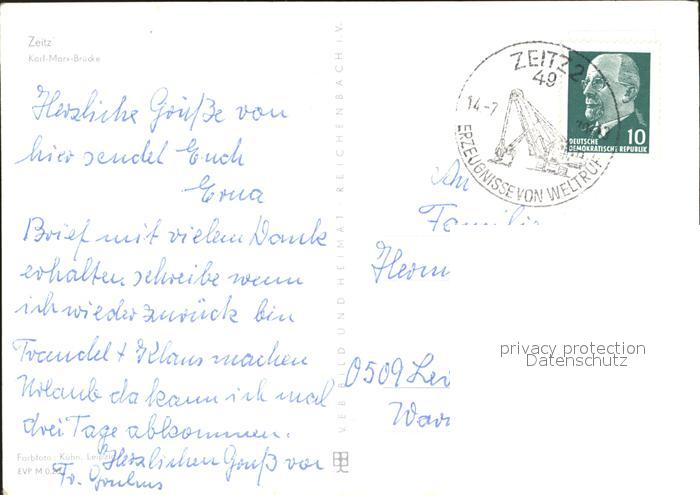 Zeitz
Karl-Marx-Brücke
Herzliche Grüße von
hier sendet Euch
Erna
Brief mit vielem Dank
erhalten, schreibe wenn
ich wieder zurück bin
Traudel + Klaus machen
Urlaub da kann ich mal
drei Tage abkommen.
Herzlichen Gruß von
Fr.
Farbfoto: Kühn, Leipzig
EVP M
VEB BILD UND HEIMAT · REICHENBACH i. V.
ZEITZ 2
49
14-7
ERZEUGNISSE VON WELTRUF
10
DEUTSCHE
DEMOKRATISCHE REPUBLIK
An
Familie
Herm
0509 Lei
privacy protection
Datenschutz